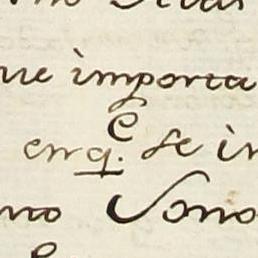 ue importa
enq.^e se in
no Sono